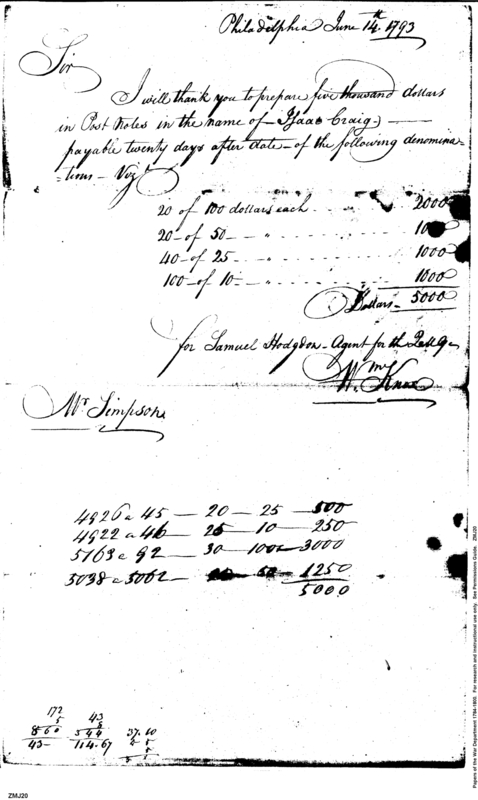 Philadelphia June 14th. 1793
Sir
I will thank you to prepare five thousand dollars
in Post Notes in the name of Isaac Craig
payable twenty days after date of the following denomina=
tions - Viz
20 of 100 dollars each 2000
20 of 50 " 10
40 of 25 " 1000
100 of 10 " 1000
Dollars 5000
for Samuel Hodgdon - Agent for the
Wm Knox
Mr Simpson
4926 a 45 — 20 — 25 — 500
4922 a 46 — 25 — 10 — 250
5163 a 92 — 30 — 100 — 3000
5038 a 5062 — 50 — 1250
5000
172
5
860
43-
43
8
344
114.67
37.10
5
Papers of the War Department 1784-1800. For research and instructional use only. See Permissions Guide. ZMJ20
ZMJ20